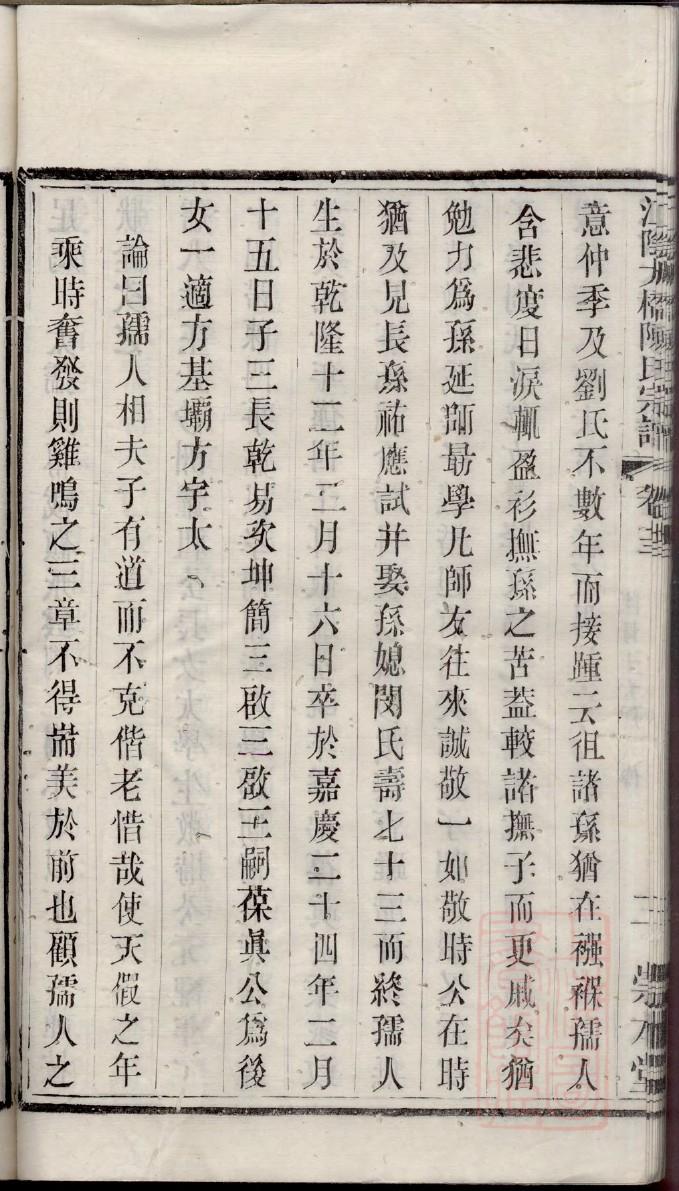 江陰九橋陳氏宗譜 卷三 三 崇本堂
意仲季及劉氏不數年而接踵云徂諸孫猶在襁褓孺人
含悲度日淚輒盈衫撫孫之苦葢較諸撫子而更戚矣猶
勉力爲孫延師最學凡師友往來誠敬一如敬時公在時
猶及見長孫祐應試并娶孫媳閔氏壽七十三而終孺人
生於乾隆十二年二月十六日卒於嘉慶二十四年二月
十五日子三長乾易次坤簡三啟三啟三嗣葆眞公爲後
女一適方基壩方宇太
論曰孺人相夫子有道而不克偕老惜哉使天假之年
乘時奮發則雞鳴之三章不得耑美於前也顧孺人之